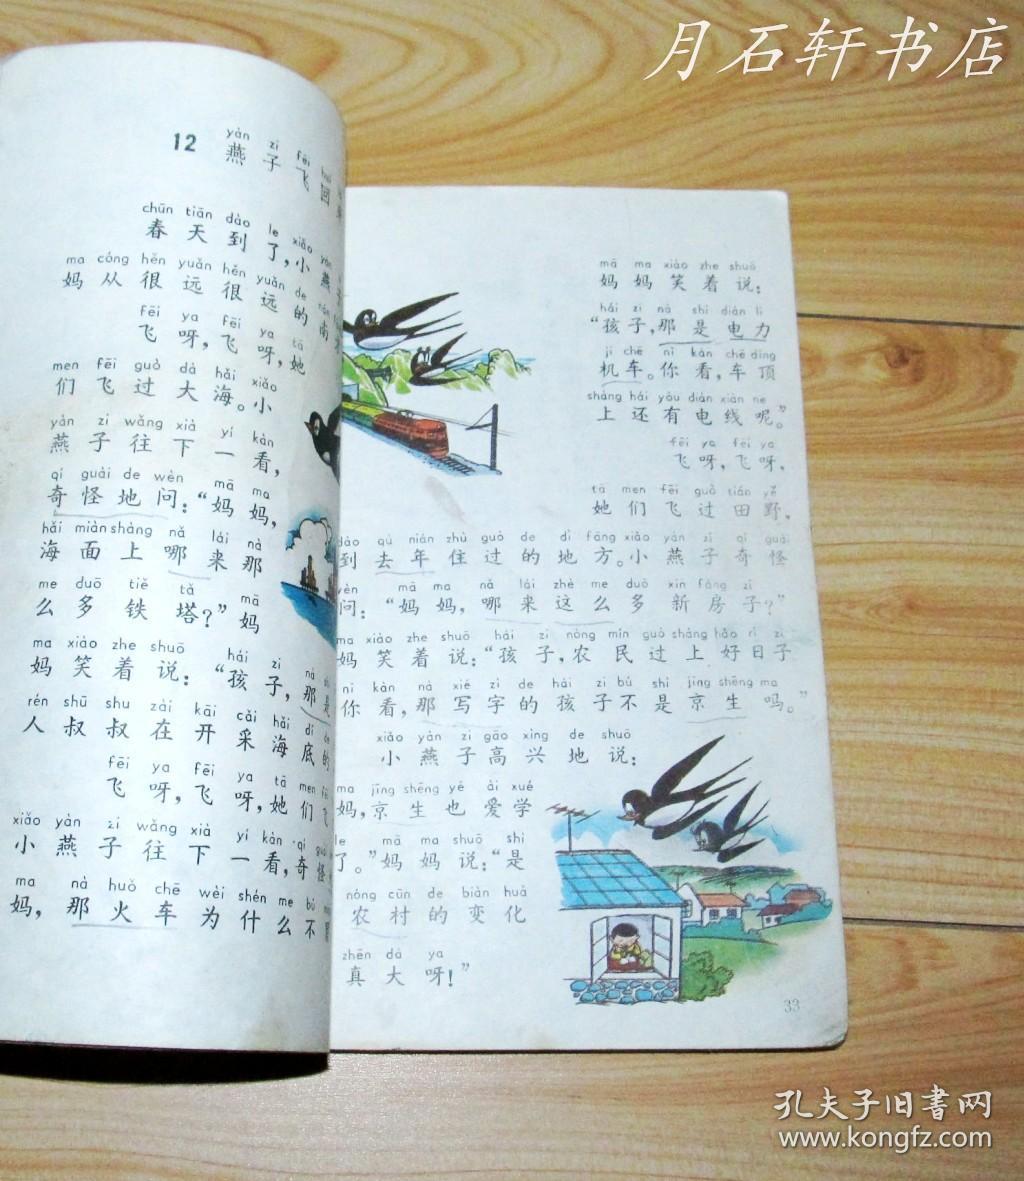 月石轩书店
yàn zi fēi huí
12 燕子飞回
chūn tiān dào le xiǎo yàn
春天到了，小燕子
ma cóng hěn yuǎn hěn yuǎn de nán
妈从很远很远的南
fēi ya fēi ya tā
飞呀，飞呀，她
men fēi guò dà hǎi xiǎo
们飞过大海。小
yàn zi wǎng xià yí kàn
燕子往下一看，
qí guài de wèn mā ma
奇怪地问：“妈妈，
hǎi miàn shàng nǎ lái nà
海面上哪来那
me duō tiě tǎ mā
么多铁塔？”妈
ma xiào zhe shuō hái zi nà shì
妈笑着说：“孩子，那是
rén shū shu zài kāi cǎi hǎi dǐ de
人叔叔在开采海底的
fēi ya fēi ya tā men fēi
飞呀，飞呀，她们飞
xiǎo yàn zi wǎng xià yí kàn qí guài
小燕子往下一看，奇怪
ma nà huǒ chē wèi shén me bú
妈，那火车为什么不
mā ma xiào zhe shuō
妈妈笑着说：
hái zi nà shì diàn lì
“孩子，那是电力
jī chē nǐ kàn chē dǐng
机车。你看，车顶
shàng hái yǒu diàn xiàn ne
上还有电线呢。”
fēi ya fēi ya
飞呀，飞呀，
tā men fēi guò tián yě
她们飞过田野，
dào qù nián zhù guò de dì fāng xiǎo yàn zi qí guài
到去年住过的地方。小燕子奇怪
wèn mā ma nǎ lái zhè me duō xīn fáng zi
问：“妈妈，哪来这么多新房子？”
ma xiào zhe shuō hái zi nóng mín guò shàng hǎo rì zi
妈笑着说：“孩子，农民过上好日子
nǐ kàn nà xiě zì de hái zi bú shì jīng shēng ma
你看，那写字的孩子不是京生吗。”
xiǎo yàn zi gāo xìng de shuō
小燕子高兴地说：
ma jīng shēng yě ài xué
妈，京生也爱学
le mā ma shuō shì
了。”妈妈说：“是
nóng cūn de biàn huà
农村的变化
zhēn dà ya
真大呀！”
33
孔夫子旧书网
www.kongfz.com